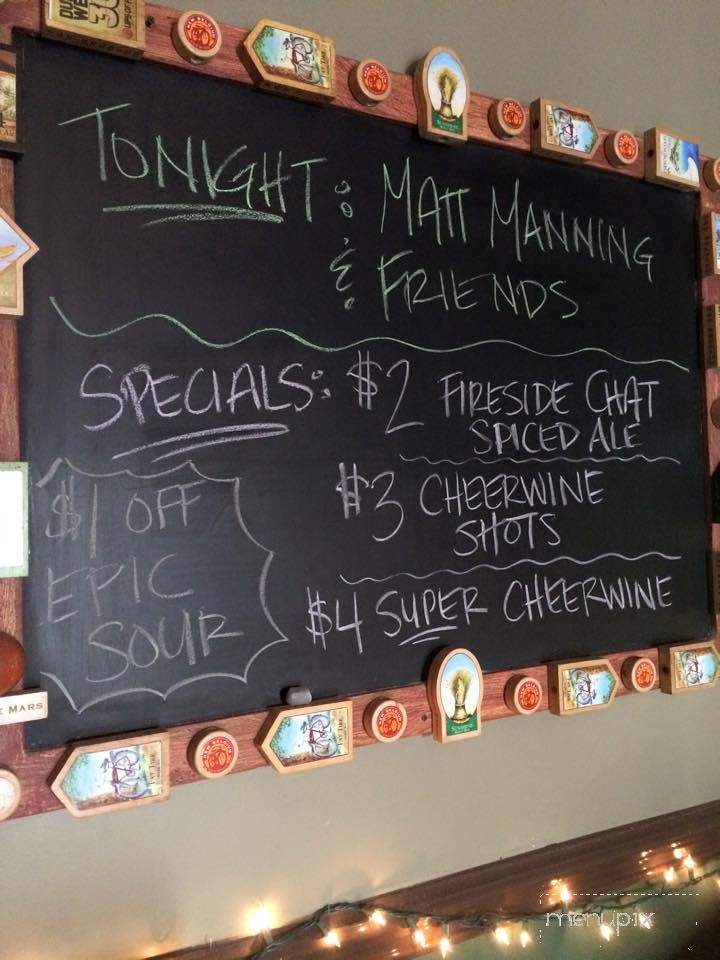 TONIGHT: MATT MANNING
& FRIENDS
SPECIALS: $2 FIRESIDE CHAT
SPICED ALE
$3 CHEERWINE
SHOTS
$4 SUPER CHEERWINE
$1 OFF
EPIC
SOUR
MARS
menupix